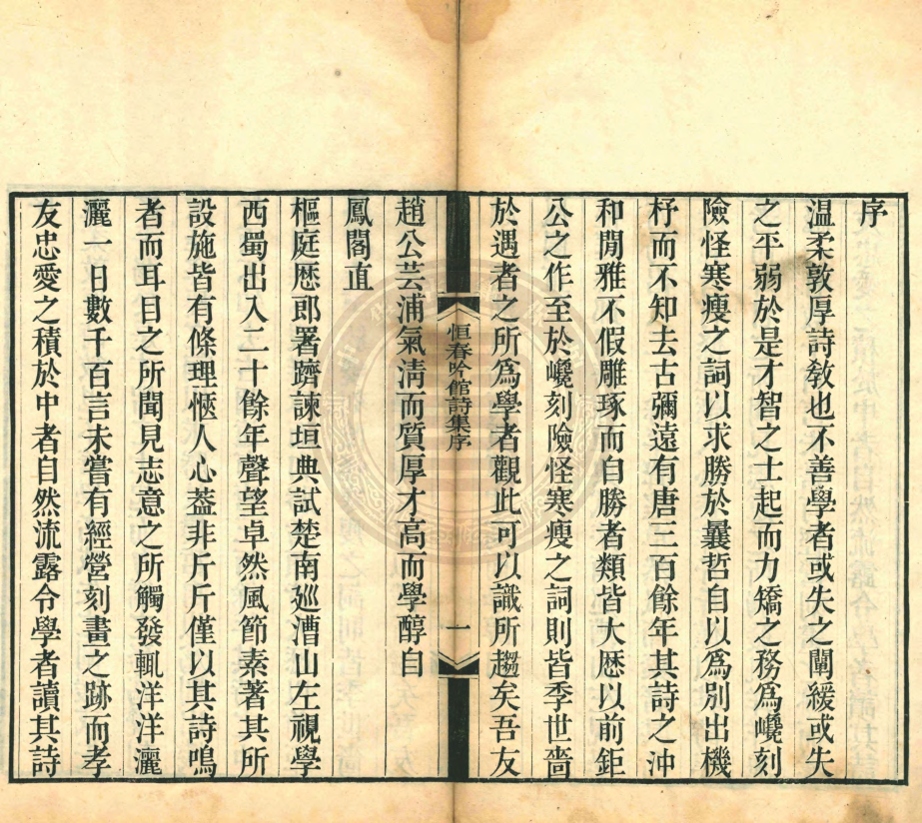 序
温柔敦厚詩敎也不善學者或失之闡緩或失
之平弱於是才智之士起而力矯之務爲巉刻
險怪寒瘦之詞以求勝於曩哲自以爲別出機
杼而不知去古彌遠有唐三百餘年其詩之沖
和閒雅不假雕琢而自勝者類皆大厯以前鉅
公之作至於巉刻險怪寒瘦之詞則皆季世嗇
於遇者之所爲學者觀此可以識所趨矣吾友
恒春吟館詩集序
一
趙公芸浦氣淸而質厚才高而學醇自
鳳閣直
樞庭厯郎署躋諫垣典試楚南廵漕山左視學
西蜀出入二十餘年聲望卓然風節素著其所
設施皆有條理愜人心葢非斤斤僅以其詩鳴
者而耳目之所聞見志意之所觸發輒洋洋灑
灑一日數千百言未嘗有經營刻畫之跡而孝
友忠愛之積於中者自然流露令學者讀其詩